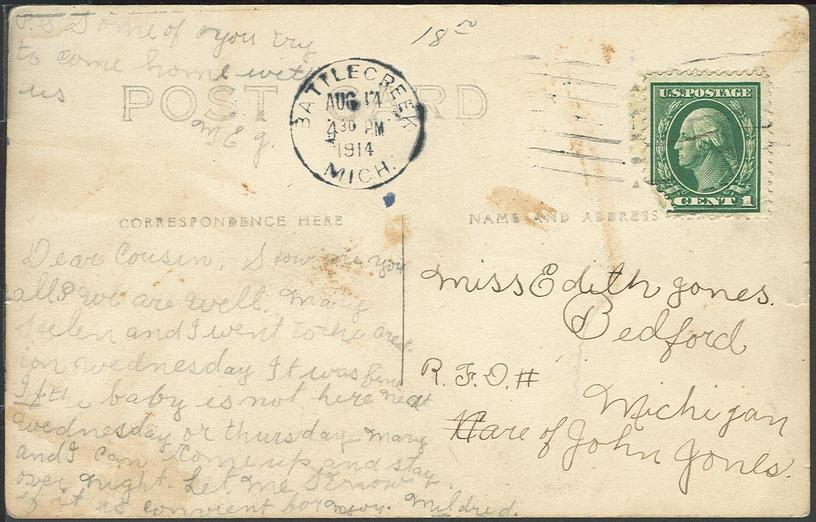 P.S Some of you try
to come home with
us
M E J.
18
POST CARD
BATTLE CREEK
AUG 14
4 30 PM
1914
MICH.
U.S. POSTAGE
CENT 1
CORRESPONDENCE HERE
NAME AND ADDRESS HERE
Dear Cousin, How are you
all? We are well. Mary
Helen and I went to the
ion wednesday It was fine
If the baby is not here next
wednesday or thursday Mary
and I can come up and stay
over night. Let me know
if it is convient for you. Mildred.
Miss Edith Jones.
Bedford
R. F. D. #
Michigan
Care of John Jones.